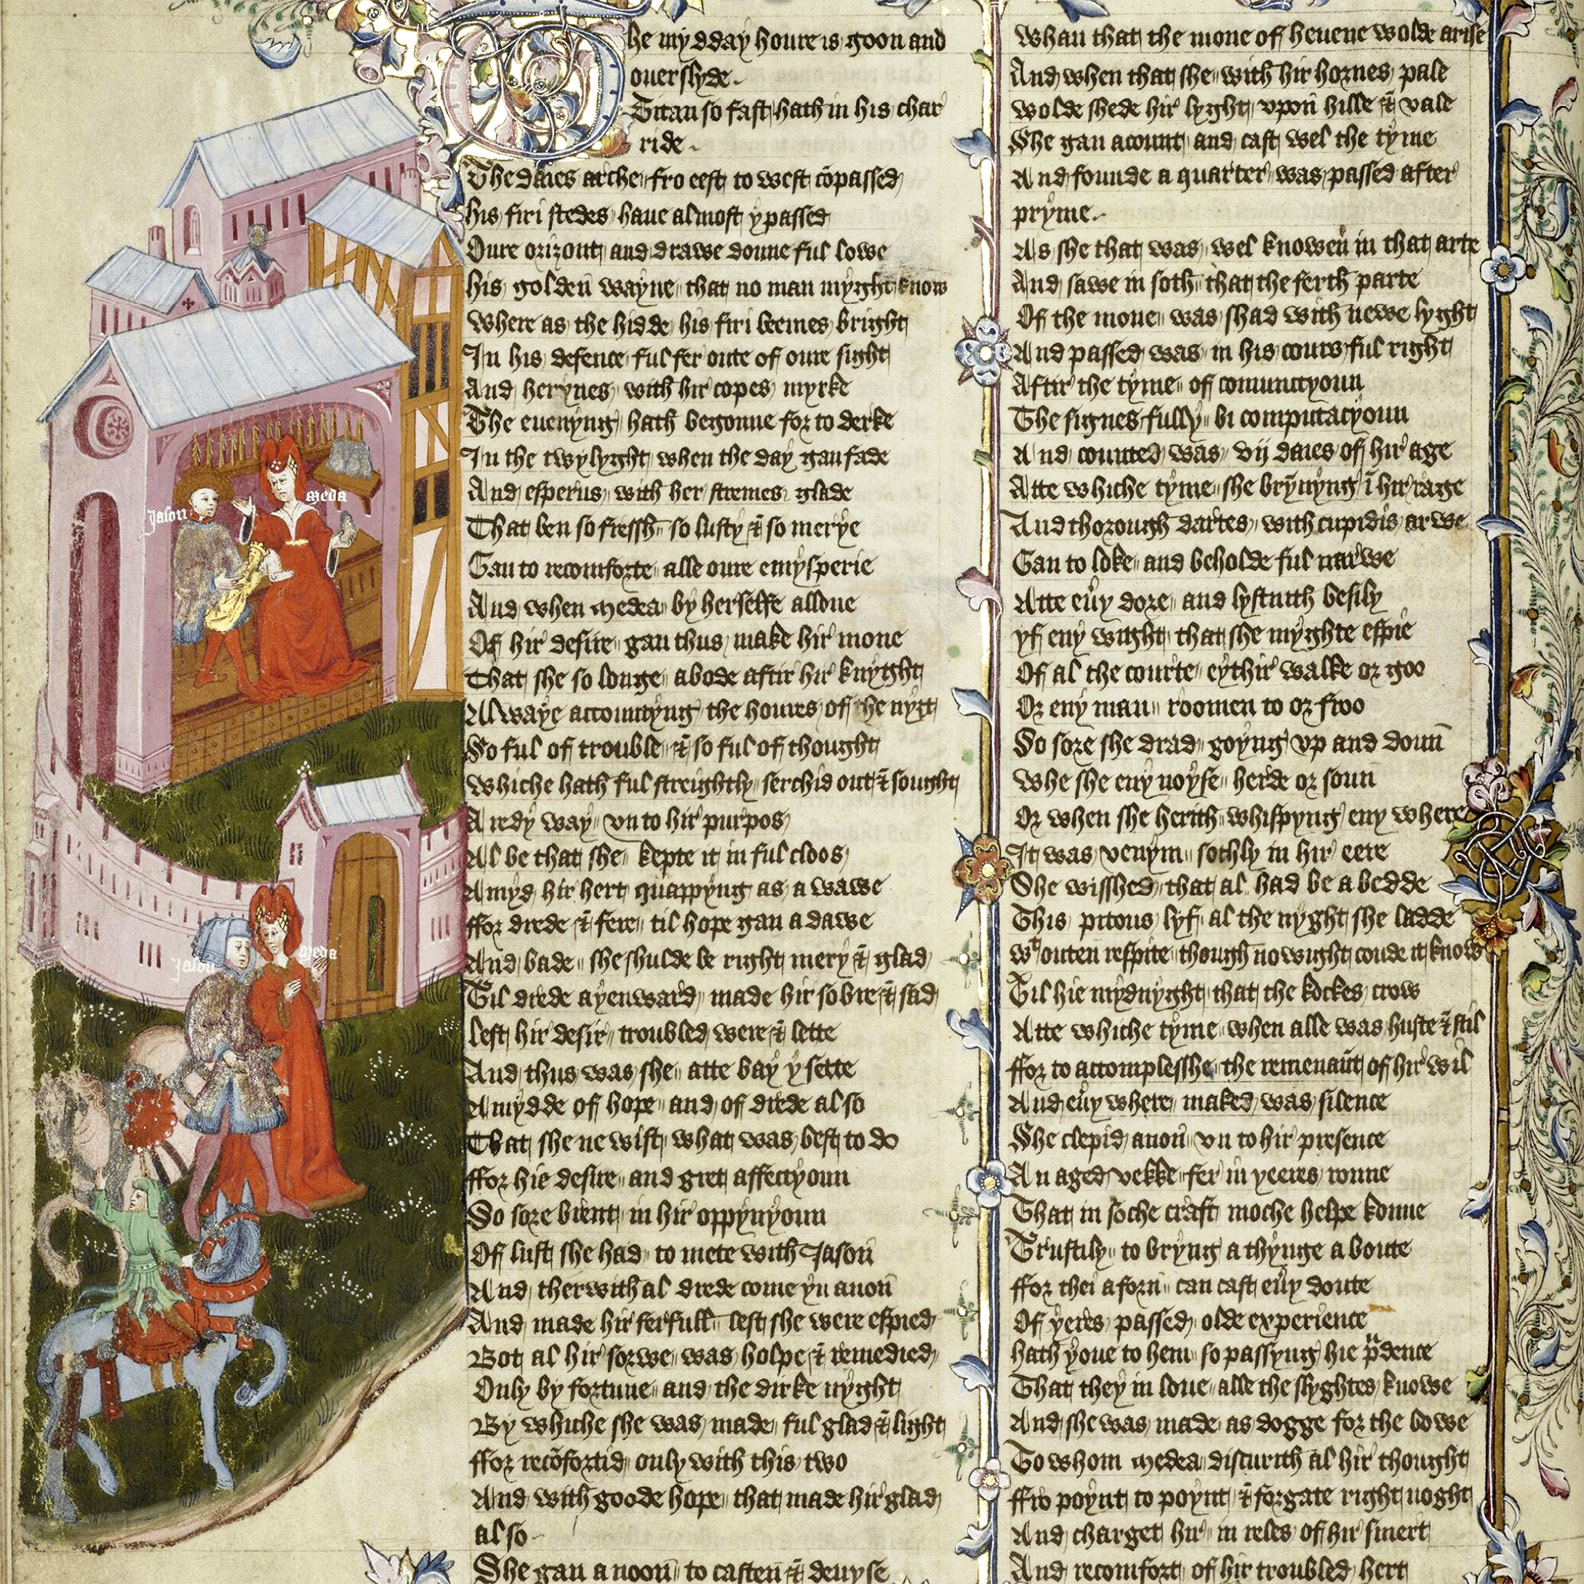 Jason
Meda
Jason
Meda
The mydday houre is goon and
ouerslyde
Titan so fast hath in his char
ride
The daies arche fro eest to west cōpassed
his firi stedes haue almost ypassed
Oure orizont and drawe doune ful lowe
his golden wayne that no man myght know
Where as the hidde his firi beemes bright
In his defence ful fer oute of oure sight
And herynes with hir copes myrke
The euenyng hath begonne for to derke
In the twylyght when the day gan fade
And esperus with her stremes glade
That ben so fressh so lusty & so merye
Gan to recomforte alle oure emysperie
And when Medea by herselfe allone
Of hir desire gan thus make hir mone
That she so longe abode aftir hir knyght
Alwaye accountyng the houres of the nyȝt
So ful of trouble & so ful of thought
Whiche hath ful streightly serchid out & sought
A redy way vnto hir purpos
Al be that she kepte it in ful cloos
Amyd hir hert quappyng as a wawe
ffor drede & fere til hope gan a dawe
And bade she shulde be right mery & glad
Til drede ayenward made hir sobre & sad
lest hir desir troubled were & lette
And thus was she atte bay y sette
Amydde of hope and of drede also
That she ne wist what was best to do
ffor hie desire and gret affectyoun
So sore brent in hir oppynyoun
Of lust she had to mete with Jason
And therwithal drede come yn anon
And made hir ferfull lest she were espied
Bot al hir sorwe was holpe & remedied
Only by fortune and the dirke nyght
By whiche she was made ful glad & light
ffor recōfortid only with this two
And with goode hope that made hir glad
also
She gan anoon to casten & deuyse
Whan that the mone of heuene wolde arise
And when that she with hir hornes pale
Wolde shede hir lyght vpon hille & vale
She gan acount and cast wel the tyme
And founde a quarter was passed after
pryme
As she that was wel knowen in that arte
And sawe in soth that the ferth parte
Of the mone was shad with newe lyght
And passed was in his cours ful right
Aftir the tyme of coniunctyoun
The signes fully bi computacyoun
And counted was vij daies of hir age
Atte whiche tyme she brynyng ī hir rage
And thorough dartes with cupidis arwe
Gan to loke and beholde ful narwe
Atte eūy dore and lystnith besily
yf eny wight that she myghte espie
Of al the courte eythir walke or goo
Or eny man roomen to or froo
So sore she drad goyng vp and doun
Whe she eny noyse herde or soun
Or when she herith whispyng eny where
It was venym sothly in hir eere
She wisshed that al had be a bedde
This pitous lyf al the nyght she ladde
wͭouten respite though no wight coude it know
Til hie mydnyght that the kockes crow
Atte whiche tyme when alle was huste & stil
ffor to accomplesshe the remenaūt of hir wil
And eūy where maked was silence
She clepid anon vn to hir presence
An aged vekke fer in yeeres ronne
That in soche craft moche helpe konne
Trustily to bryng a thynge a boute
ffor thei aforn can cast eūy doute
Of yeres passed olde experience
hath youe to hem so passyng hie pͬdence
That they in loue alle the slyghtes knowe
And she was made as dogge for the bowe
To whom Medea discurith al hir thought
ffro poynt to poynt & forgate right noght
And charget hir in reles of hir smert
And recomfort of hir troubled hert